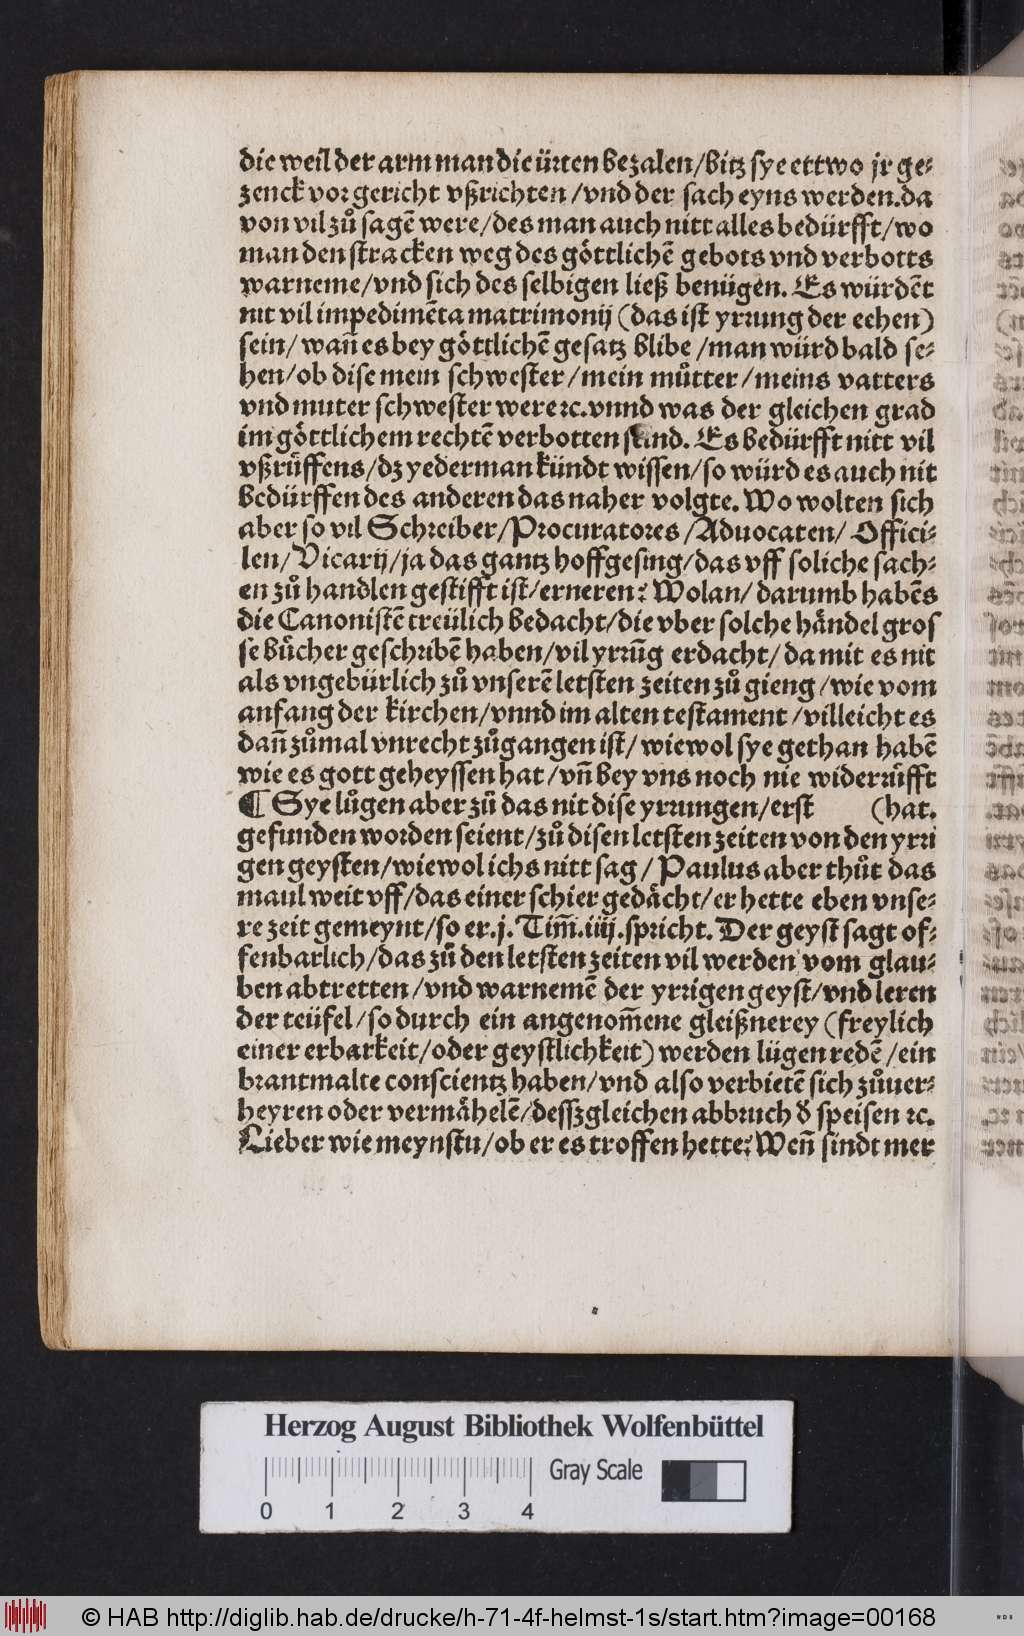 die weil der arm man die ürten bezalen/bitz sye ettwo jr ge⸗
zenck vor gericht vßrichten/vnd der sach eyns werden.da
von vil zů sagē were/des man auch nitt alles bedürfft/wo
man den stracken weg des göttlichē gebots vnd verbotts
warneme/vnd sich des selbigen ließ benügen. Es würdēt
nit vil impedimēta matrimonij (das ist yrrung der eehen)
sein/ wañ es bey göttlichē gesatz blibe/man würd bald se⸗
hen/ob dise mein schwester/mein můtter/meins vatters
vnd muter schwester were ꝛc.vnnd was der gleichen grad
im göttlichem rechtē verbotten sind. Es bedürfft nitt vil
vßrůffens/dz yederman kündt wissen/so würd es auch nit
bedürffen des anderen das naher volgte. Wo wolten sich
aber so vil Schreiber/Procuratores/Aduocaten/ Offici⸗
len/Vicarij/ja das gantz hoffgesing/das vff soliche sach⸗
en zů handlen gestifft ist/erneren? Wolan/ darumb habēs
die Canonistē treülich bedacht/die vber solche händel gros
se bücher geschribē haben/vil yrrūg erdacht/ da mit es nit
als vngebürlich zů vnserē letsten zeiten zů gieng/wie vom
anfang der kirchen/vnnd im alten testament/villeicht es
dañ zůmal vnrecht zůgangen ist/ wiewol sye gethan habē
wie es gott geheyssen hat/vñ bey vns noch nie widerrůfft
¶ Sye lůgen aber zů das nit dise yrrungen/erst (hat.
gefunden worden seient/zů disen letsten zeiten von den yrri
gen geysten/wiewol ichs nitt sag/ Paulus aber thůt das
maul weit vff/das einer schier gedächt/er hette eben vnse⸗
re zeit gemeynt/so er.j.Tim̄.iiij.spricht. Der geyst sagt of⸗
fenbarlich/das zů den letsten zeiten vil werden vom glau⸗
ben abtretten/vnd warnemē der yrrigen geyst/vnd leren
der teüfel/so durch ein angenom̄ene gleißnerey (freylich
einer erbarkeit/oder geystlichkeit) werden lügen redē/ein
brantmalte conscientz haben/vnd also verbietē sich zůuer⸗
heyren oder vermähelē/desßgleichen abbruch d̓ speisen ꝛc.
Lieber wie meynstu/ob er es troffen hette? Weñ sindt mer
Herzog August Bibliothek Wolfenbüttel
Gray Scale
0 1 2 3 4
© HAB http://diglib.hab.de/drucke/h-71-4f-helmst-1s/start.htm?image=00168